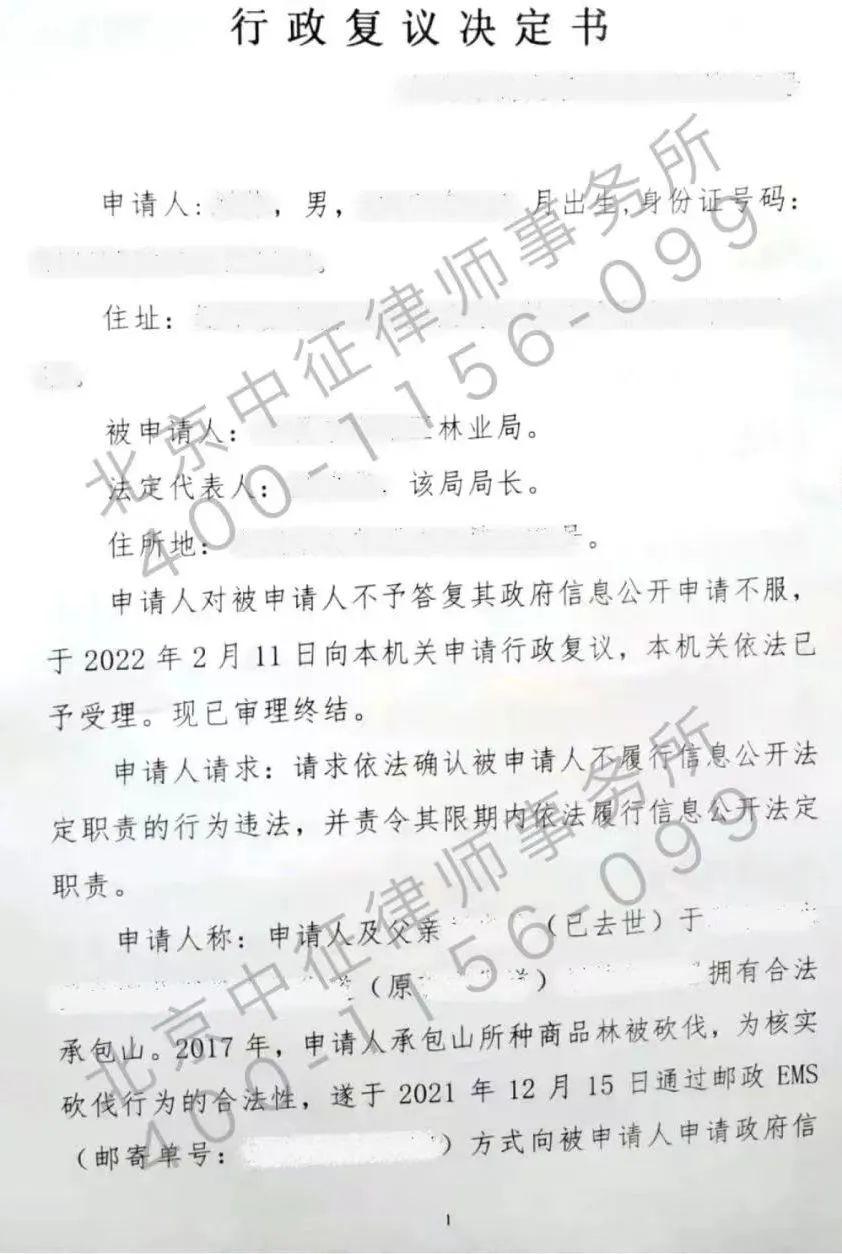 行政复议决定书
申请人: ，男， 月出生,身份证号码：
。
住址：
。
被申请人： 林业局。
法定代表人： 该局局长。
住所地： 号。
申请人对被申请人不予答复其政府信息公开申请不服，
于 2022 年 2 月 11 日向本机关申请行政复议，本机关依法已
予受理。现已审理终结。
申请人请求：请求依法确认被申请人不履行信息公开法
定职责的行为违法，并责令其限期内依法履行信息公开法定
职责。
申请人称：申请人及父亲 （已去世）于
（原 ） 拥有合法
承包山。2017 年，申请人承包山所种商品林被砍伐，为核实
砍伐行为的合法性，遂于 2021 年 12 月 15 日通过邮政 EMS
（邮寄单号： ）方式向被申请人申请政府信
1
北京中征律师事务所
400-1156-099
北京中征律师事务所
400-1156-099